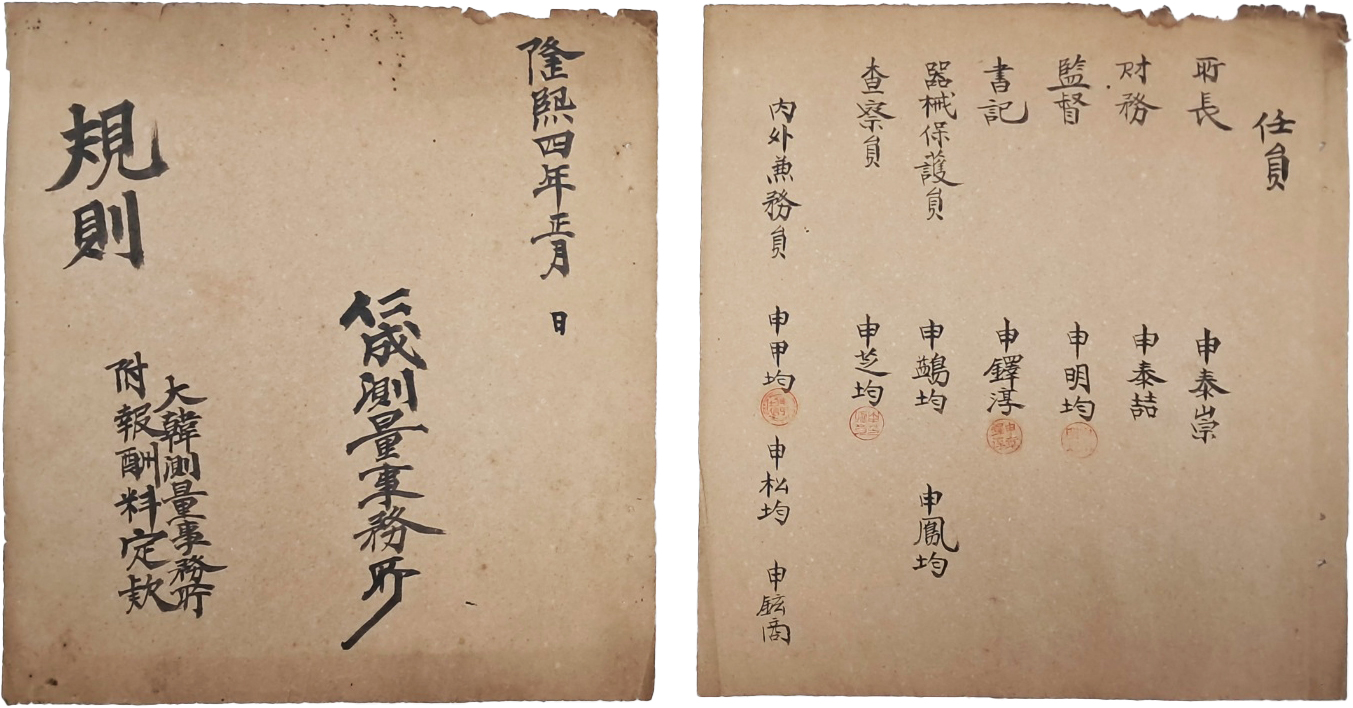 隆熙四年正月 日
仁成測量事務所
大韓測量事務所
附報酬料定款
規則
任員
所長 申泰崇
財務 申泰喆
監督 申明均
書記 申鐸淳
器械保護員 申鷊均 申鳳均
查察員 申芝均
內外兼務員 申甲均 申松均 申鉉商